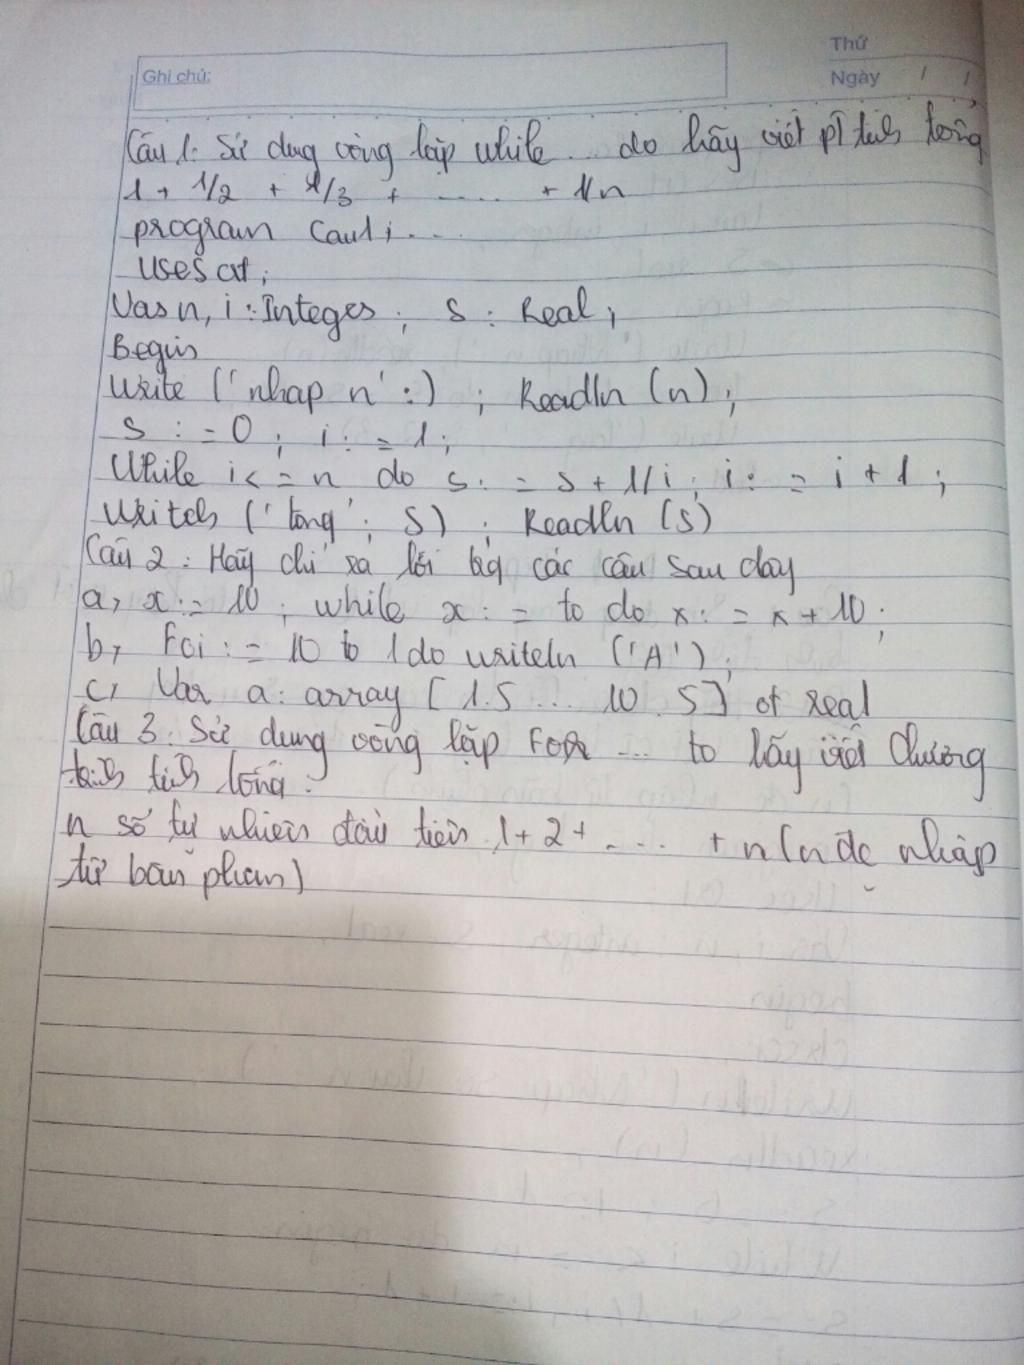 Thứ
Ghi chú:
Ngày / /
Câu 1: Sử dụng vòng lặp while ... do hãy viết pT tính tổng
1 + 1/2 + 1/3 + ..... + 1/n
program Cau1; ...
Uses crt;
Var n, i : Integer ; S : Real ;
Begin
Write ('nhap n' :) ; Readln (n) ;
S := 0 ; i := 1 ;
While i <= n do S := S + 1/i ; i := i + 1 ;
Writeln ('tong' ; S) ; Readln (S)
Câu 2 : Hãy chỉ ra lỗi các câu sau đây
a, x := 10 ; while x := to do x := x + 10 ;
b, Fo i := 10 to 1 do writeln ('A') ;
c, Var a : array [ 1.5 ... 10 . 5 ] of real
Câu 3 : Sử dụng vòng lặp For ... to hãy viết chương
trình tính tổng :
n số tự nhiên đầu tiên 1 + 2 + .... + n (n đc nhập
từ bàn phím)